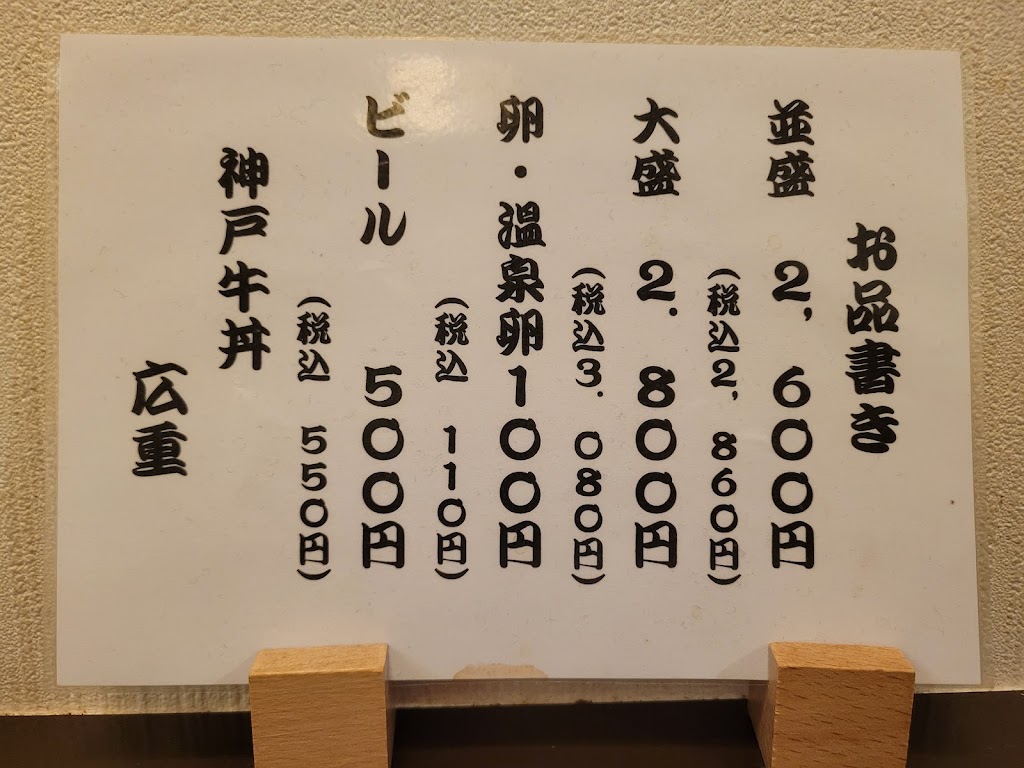 お品書き
並盛 2,600円
(税込2,860円)
大盛 2.800円
(税込3.080円)
卵・温泉卵100円
(税込 110円)
ビール 500円
(税込 550円)
神戸牛丼
広重